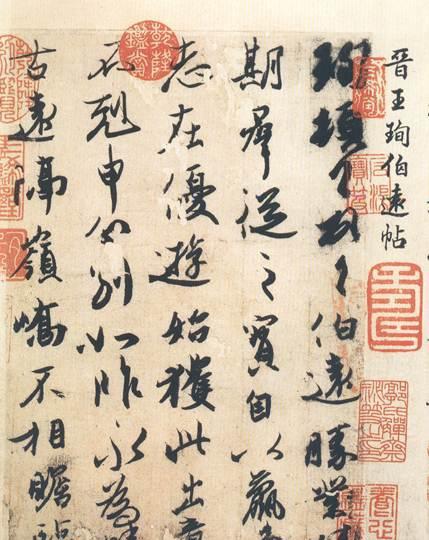 晉王珣伯遠帖
珣頓首頓首伯遠勝業
期群從之寶自以羸
志在優遊始獲此出意
不剋申分別如昨永為
古遠隔嶺嶠不相瞻臨
乾隆鑑賞